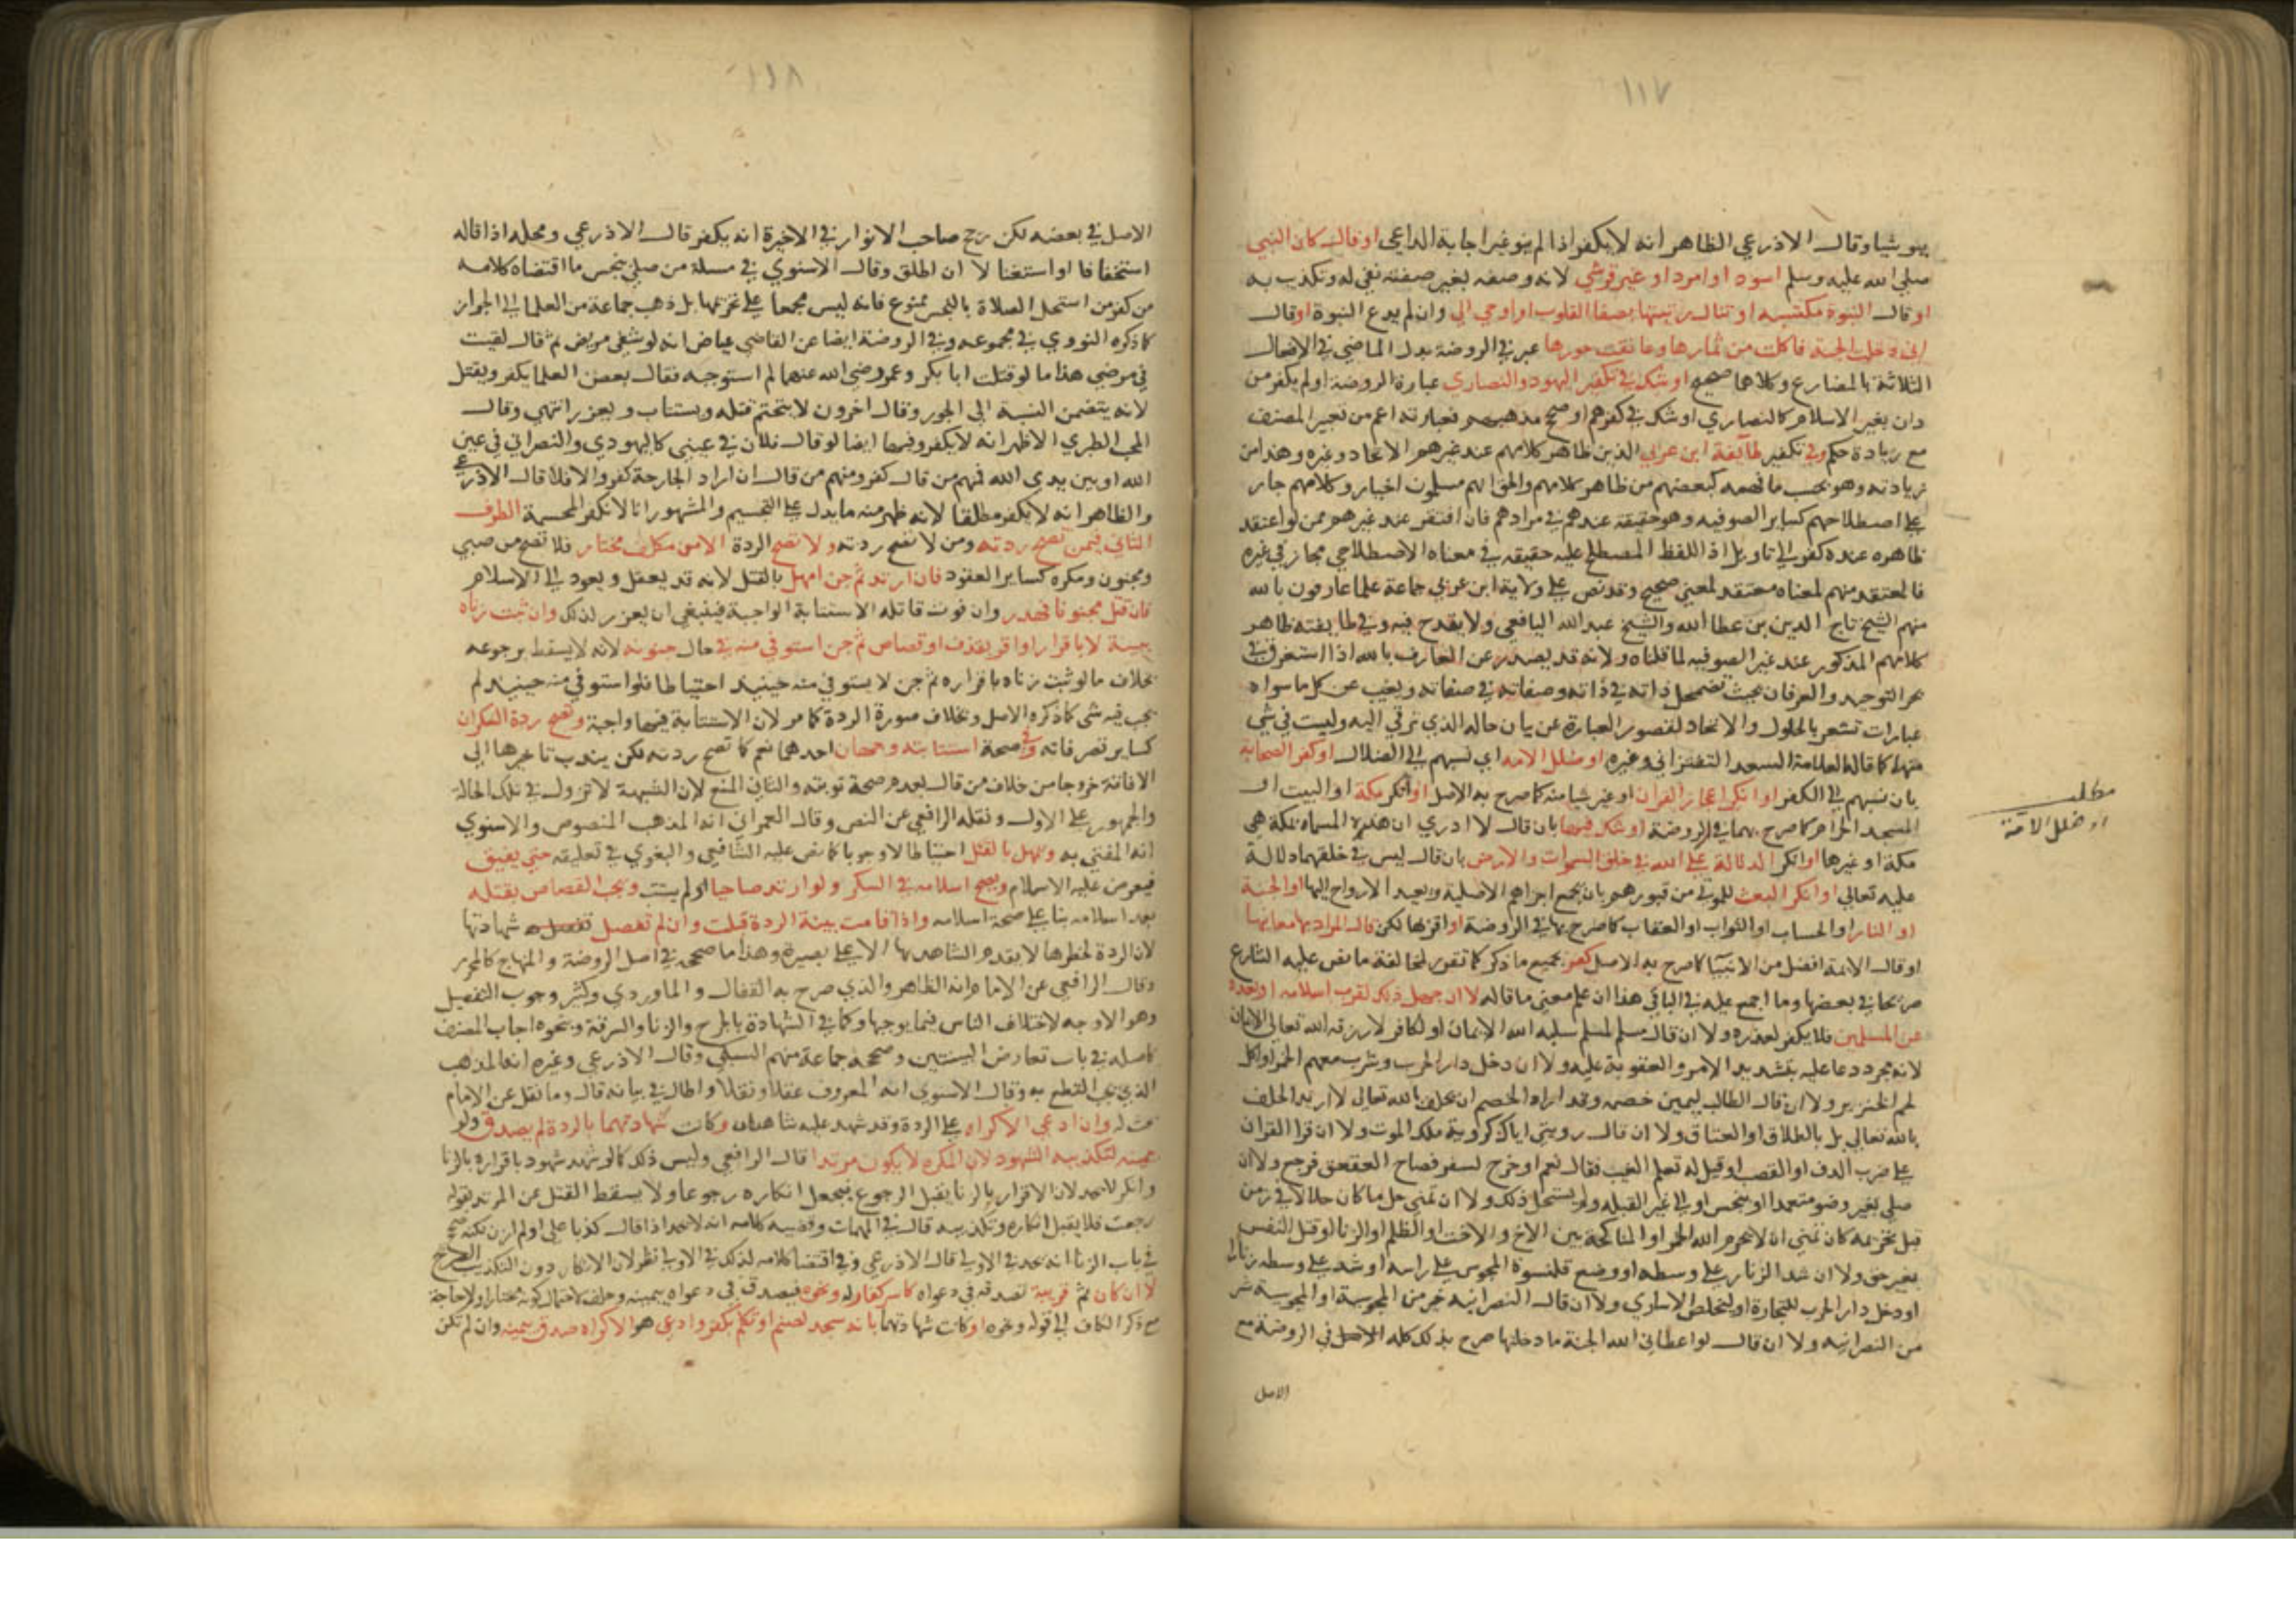 ١١٧
ينو شيا وقال الاذرعي الظاهر انه لا يكفر اذا لم ينو غير اجابة الداعي او قال كان النبي
صلي الله عليه وسلم اسود او امرد او غير قرشي لانه وصفه بغير صفته نفي له وتكذيب به
او قال النبوة مكتسبه او تنال رتبتها بصفا القلوب او اوحي الي وان لم يدع النبوة او قال
اني دخلت الجنة فاكلت من ثمارها وعانقت حورها عبر في الروضة بدل الماضي في الافعال
الثلاثة بالمضارع وكلاهما صحيح او شك في تكفير اليهود والنصاري عبارة الروضة او لم يكفر من
دان بغير الاسلام كالنصاري او شك في كفرهم او صحح مذهبهم فعبارته اعم من تعبير المصنف
مع زيادة حكم وفي تكفير طائفة ابن عربي الذين ظاهر كلامهم عند غيرهم الاتحاد وغيره وهذا من
زيادته وهو بحسب ما فهمه كبعضهم من ظاهر كلامهم والحق انهم مسلمون اخيار وكلامهم جار
علي اصطلاحهم كساير الصوفيه وهو حقيقة عندهم في مرادهم فان افتقر عند غيرهم ممن لو اعتقد
ظاهره عنده كفر الي تاويل اذ اللفظ المصطلح عليه حقيقه في معناه الاصطلاحي مجاز في غيره
فالمعتقد منهم لمعناه معتقد لمعني صحيح وقد نص علي ولاية ابن عربي جماعة علما عارفون بالله
منهم الشيخ تاج الدين بن عطا الله والشيخ عبد الله اليافعي ولا يقدح فيه وفي طايفته ظاهر
كلامهم المذكور عند غير الصوفيه لما قلناه ولانه قد يصدر عن العارف بالله اذا استغرق في
بحر التوحيد والعرفان بحيث تضمحل ذاته في ذاته وصفاته في صفاته ويغيب عن كل ما سواه
عبارات تشعر بالحلول والاتحاد لقصور العبارة عن بيان حاله الذي ترقي اليه وليست في شي
منهما كما قاله العلامة السعد التفتزاني وغيره او ضلل الامه اي نسبهم الي الضلال او كفر الصحابة
بان نسبهم الي الكفر او انكر اعجاز القران او غير شيا منه كما صرح به الاصل او انكر مكة او البيت او
المسجد الحرام كما صرح بهما في الروضة او شك فيها بان قال لا ادري ان هذه المسماه بمكة هي
مكة او غيرها او انكر الدلالة علي الله في خلق السموات والارض بان قال ليس في خلقهما دلالة
عليه تعالي او انكر البعث للموتي من قبورهم بان يجمع اجزاهم الاصلية ويعيد الارواح اليها او الجنة
او النار او الحساب او الثواب او العقاب كما صرح بها في الروضة او اقر بها لكن قال المراد بها معانيها
او قال الايمة افضل من الانبيا كما صرح به الاصل كفر بجميع ما ذكر كما تقرر لمخالفة ما نص عليه الشارع
صريحا في بعضها وما اجمع عليه في الباقي هذا ان علم معني ما قاله لا ان جهل ذلك لقرب اسلامه او بعده
عن المسلمين فلا يكفر لعذره ولا ان قال مسلم لمسلم سلبه الله الايمان او لكافر لا رزقه الله تعالي الايمان
لانه مجرد دعا عليه بتشديد الامر والعقوبة عليه ولا ان دخل دار الحرب وشرب معهم الخمر او اكل
لحم الخنزير ولا ان قال الطالب ليمين خصمه وقد اراد الخصم ان يحلف بالله تعالي لا اريد الحلف
بالله تعالي بل بالطلاق او العتاق ولا ان قال رويتي اياك كروية ملك الموت ولا ان قرا القران
علي ضرب الدف او القصب او قيل له تعلم الغيب فقال نعم او خرج لسفر فصاح العقعق فرجع ولا ان
صلي بغير وضو متعمدا او بنجس او الي غير القبله ولم يستحل ذلك ولا ان تمني حل ما كان حلالا في زمن
قبل تحريمه كان تمني ان لا يحرم الله الخمر او المناكحة بين الاخ والاخت او الظلم او الزنا او قتل النفس
بغير حق ولا ان شد الزنار علي وسطه او وضع قلنسوة المجوس علي راسه او شد علي وسطه زنارا
او دخل دار الحرب للتجارة او لتخلص الاساري ولا ان قال النصرانيه خير من المجوسية او المجوسية شر
من النصرانيه ولا ان قال لو اعطاني الله الجنة ما دخلتها صرح بذلك كله الاصل في الروضة مع
الاصل
مطلب
او ضلل الامة
١١٨
الاصل في بعضه لكن رجح صاحب الانوار في الاخيرة انه يكفر قال الاذرعي ومحله اذا قاله
استخفافا او استغنا لا ان اطلق وقال الاسنوي في مسلة من صلي بنجس ما اقتضاه كلامه
من كفر من استحل الصلاة بالنجس ممنوع فانه ليس مجمعا علي تحريمها بل ذهب جماعة من العلما الي الجواز
كما ذكره النووي في مجموعه وفي الروضة ايضا عن القاضي عياض انه لو شفي مريض ثم قال لقيت
في مرضي هذا ما لو قتلت ابا بكر وعمر رضي الله عنهما لم استوجبه فقال بعض العلما يكفر ويقتل
لانه يتضمن النسبة الي الجور وقال اخرون لا يتحتم قتله ويستتاب ويعزر انتهي وقال
المحب الطبري الاظهر انه لا يكفر وفيها ايضا لو قال فلان في عيني كاليهودي والنصراني في عين
الله او بين يدي الله فمنهم من قال كفر ومنهم من قال ان اراد الجارحة كفر والا فلا قال الاذرعي
والظاهر انه لا يكفر مطلقا لانه ظهر منه ما يدل علي التجسيم والمشهور انا لا نكفر المجسمة الطرف
الثاني فيمن تصح ردته ومن لا تصح ردته ولا تصح الردة الا من مكلف مختار فلا تصح من صبي
ومجنون ومكره كساير العقود فان ارتد ثم جن امهل بالقتل لانه قد يعقل ويعود الي الاسلام
فان قتل مجنونا فهدر وان فوت قاتله الاستتابة الواجبة فينبغي ان يعزر لذلك وان ثبت زناه
ببينة لا باقرار او اقر بقذف او قصاص ثم جن استوفي منه في حال جنونه لانه لا يسقط برجوعه
بخلاف ما لو ثبت زناه باقراره ثم جن لا يستوفي منه حينيد احتياطا فلو استوفي منه حينيد لم
يجب فيه شي كما ذكره الاصل وبخلاف صورة الردة كما مر لان الاستتابة فيها واجبة وتصح ردة السكران
كساير تصرفاته وفي صحة استتابته وجهان احدهما نعم كما تصح ردته لكن يندب تاخيرها الي
الافاقة خروجا من خلاف من قال بعدم صحة توبته والثاني المنع لان الشبهة لا تزول في تلك الحالة
والجمهور علي الاول ونقله الرافعي عن النص وقال العمراني انه المذهب المنصوص والاسنوي
انه المفتي به ويمهل بالقتل احتياطا لا وجوبا كما نص عليه الشافعي والبغوي في تعليقه حتي يفيق
فيعرض عليه الاسلام ويصح اسلامه في السكر ولو ارتد صاحيا او لم يستتب ويجب القصاص بقتله
بعد اسلامه بنا علي صحة اسلامه واذا قامت بينة الردة قبلت وان لم تفصل شهادتها
لان الردة لخطرها لا يقدم الشاهد بها الا علي بصيرة وهذا ما صححه في اصل الروضة والمنهاج كالمحرر
وقال الرافعي عن الامام انه الظاهر والذي صرح به القفال والماوردي وكثير وجوب التفصيل
وهو الاوجه لاختلاف الناس فيما يوجبها وكما في الشهادة بالجرح والزنا والسرقة وبنحوه اجاب المصنف
كاصله في باب تعارض البينتين وصححه جماعة منهم السبكي وقال الاذرعي وغيره انه المذهب
الذي يجب القطع به وقال الاسنوي انه المعروف عقلا ونقلا واطال في بيانه قال وما نقل عن الامام
وان ادعي الاكراه علي الردة وقد شهد عليه شاهدان وكانت شهادتهما بالردة لم يصدق ولو
يمينه لتكذيبه الشهود لان المكره لا يكون مرتدا قال الرافعي وليس ذلك كما لو شهد شهود باقراره بالزنا
وانكر لا يحد لان الاقرار بالزنا يقبل الرجوع فيجعل انكاره رجوعا ولا يسقط القتل عن المرتد بقوله
رجعت فلا يقبل انكاره وتكذيبه قال في المهمات وقضيه كلامه انه لا يحد اذا قال كذبا علي او لم ازن لكنه صحح
في باب الزنا انه يحد في الاولي قال الاذرعي وفي اقتضا كلامه لذلك في الاولي نظر لان الانكار دون التكذيب الصريح
لا ان كان ثم قرينة تصدقه في دعواه كاسر كفار له ونحوه فيصدق في دعواه بيمينه وحلف لاحتمال كونه مختارا ولا حاجة
مع ذكر الكاف الي قوله ونحوه او كانت شهادتهما بانه سجد لصنم او تكلم بكفر وادعي هو الاكراه صدق بيمينه وان لم تكن